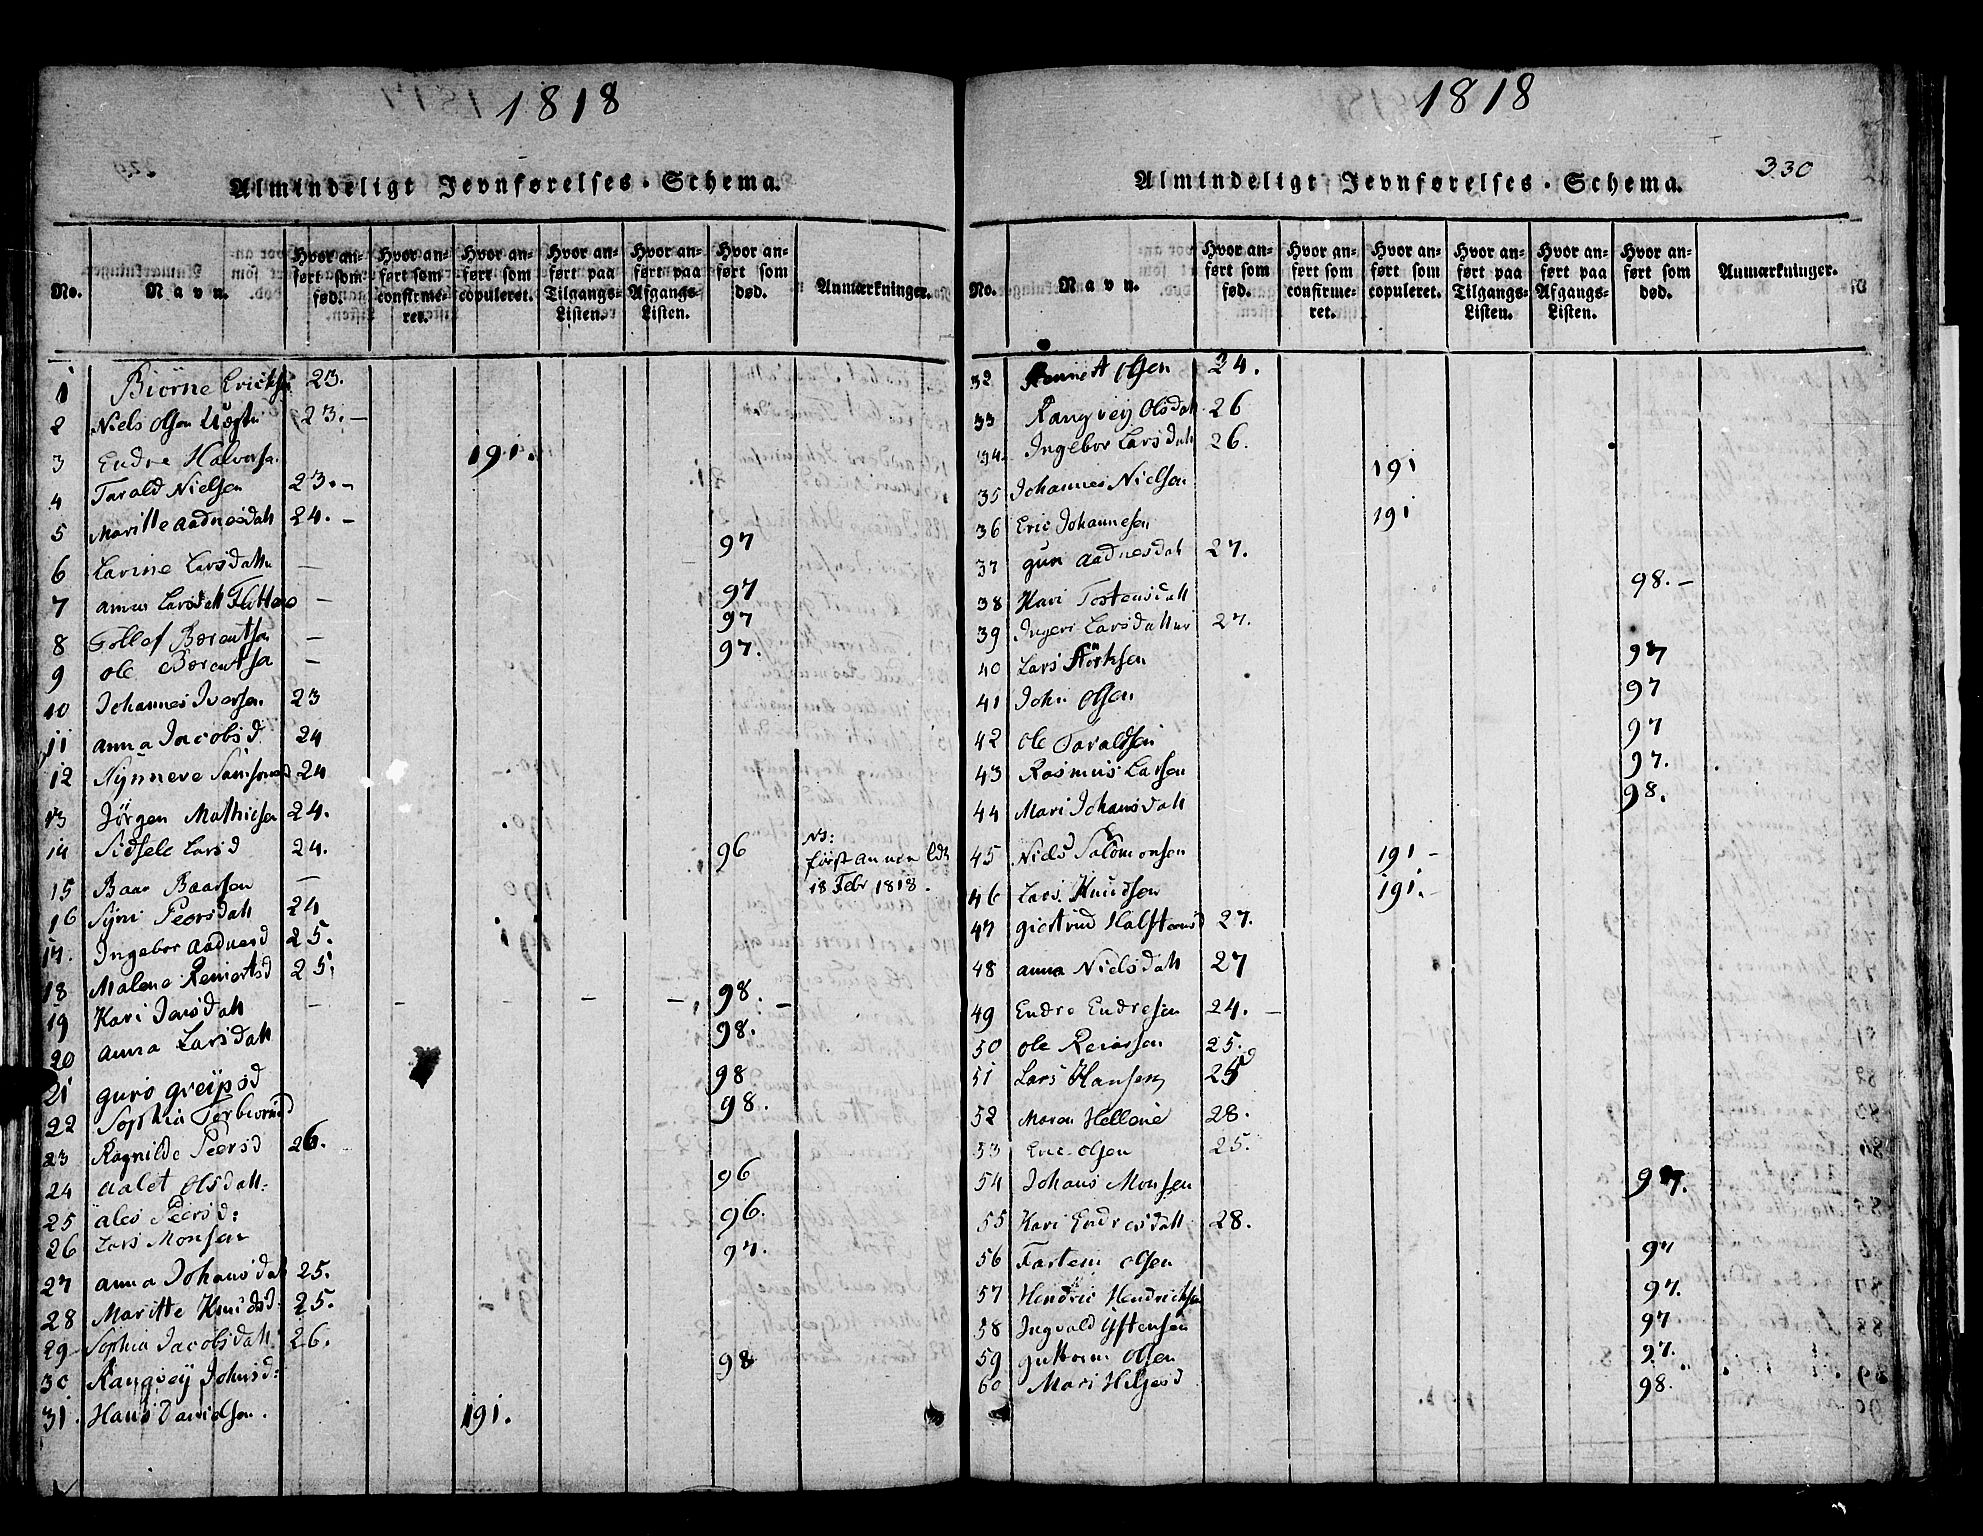 1818
Almindeligt Jevnførelses-Schema.
No. Navn. Hvor anført som fød. Hvor anført som confirmeret. Hvor anført som copuleret. Hvor anført paa Tilgangs-Listen. Hvor anført paa Afgangs-Listen. Hvor anført som død. Anmærkninger.
1 Biørne Ericks 23.
2 Niels Olsen 23.—
3 Endre Halvorsn. 191.
4 Tarald Nielsen 23.—
5 Maritte Aadnesdatt 24.—
6 Larine Larsdattr — 97
7 Anna Larsdatt —  97
8 Tollef Bærentsen — 97
9 Ole Bærentsen — 97.
10 Johannes Iversen 23
11 Anna Jacobsd 24
12 Synneve Samsonsd 24
13 Jörgen Mathiesen 24.
14 Sidsele Larsd 24. 96 NB:
født 18 Febr 1818.
15 Baar Baarsen —
16 Syni Peersdatt 24
17. Ingebor Aadnesd 25.
18 Malene Reniertsd 25.
19 Kari Jensdatt — — — — 98. —
20 Anna Larsdatt 98.
21 Guro Greipsd 98
22 Sophia Torbiornsd 98.
23 Ragnilde Peersd 26. —
24 Aalet Olsdatt: 96
25 Ales Peersd: 96.
26 Lars Monsen 97.
27 Anna Johansdat 25.
28 Maritte Knudsd. 25.
29 Sophia Jacobsdatt. 26.
30 Rangvey Johnsd: 98
31. Hans Davidsen. 191.
1818
330
Almindeligt Jevnførelses-Schema.
No. Navn. Hvor anført som fød. Hvor anført som confirmeret. Hvor anført som copuleret. Hvor anført paa Tilgangs-Listen. Hvor anført paa Afgangs-Listen. Hvor anført som død. Anmærkninger.
32 Olsen 24.
33 Rangvey Olsdatt 26
34. Ingebor Larsdatt 26.
35 Johannes Nielsen 191
36 Eric Johannesen 191
37 Guri Aadnesdatt 27.
38 Kari Tostensdatt 98.—
39 Ingeri Larsdatter 27.
40 Lars 97
41 John Olsen 97
42 Ole Taraldsen 97
43 Rasmus Larsen 97.
44 Mari Johansdatt 98.
45 Niels Salomonsen 191—
46 Lars Knudsen 191.—
47 Giertrud Halstensd 27.
48 Anna Nielsdatt 27
49 Endre Endresen 24.—
50 Ole Reiersen 25.
51 Lars Hansen 25
52 Maren Hellene 28.
53 Eric Olsen 25.
54 Johans Monsen 97.
55 Kari Endresdatt 28.
56 Olsen 97
57 Hendric Hendricksen 97.
58 Ingvald 97
59 Guttorm Olsen 97.
60 Mari Helgesd 98.